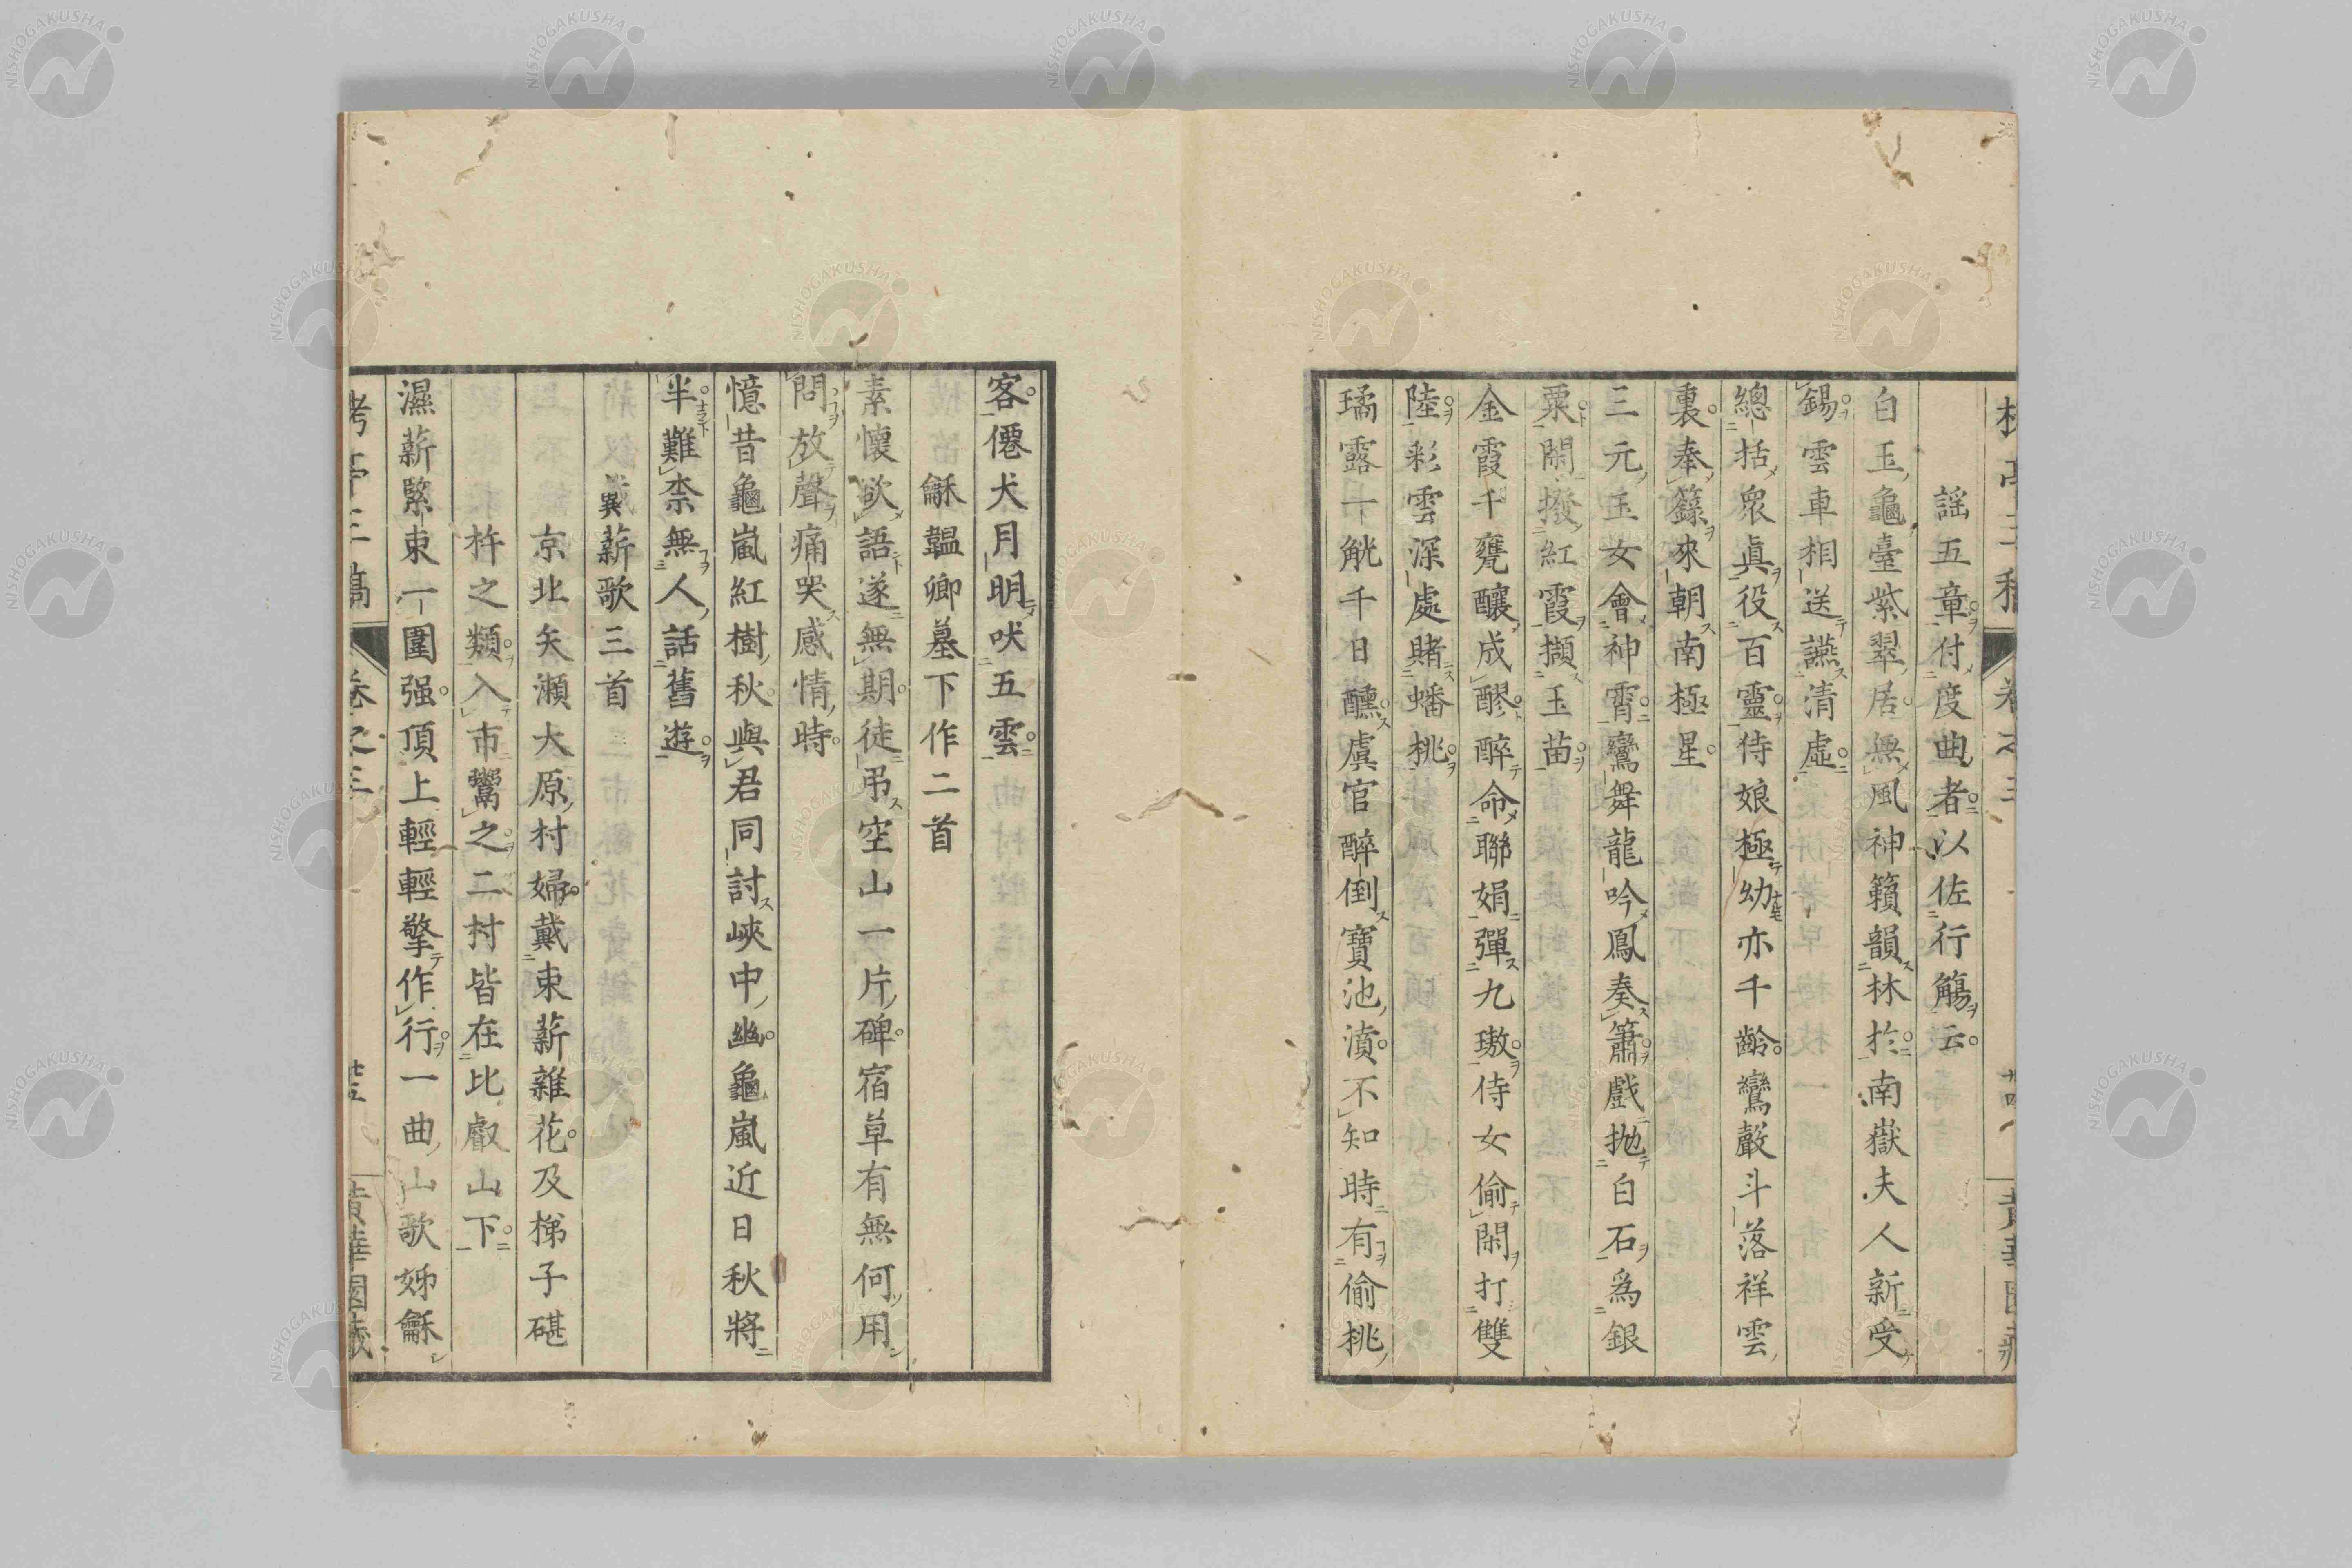 謡五章付度曲者以佐行觴云
白玉龜臺紫翠居無風神籟韻林於南嶽夫人新受
錫雲車相送讌清虛
總括衆眞役百靈侍娘極幼亦千齡鸞巖斗落祥雲
裏奉籙來朝南極星
三元玉女會神霄鸞舞龍吟鳳奏簫戲抛白石爲銀
粟閑撥紅霞擷玉苗
金霞千甕釀成醪醉命聯娟彈九璈侍女偷閑打雙
陸彩雲深處賭蟠桃
璚露一觥千日醺虞官醉倒寶池濆不知時有偷桃
客僊犬月明吠五雲
龢韞卿墓下作二首
素懷欲語遂無期徒弔空山一片碑宿草有無何用
問放聲痛哭感情時
憶昔龜嵐紅樹秋與君同討峽中幽龜嵐近日秋將
半難柰無人話舊遊
薪歌三首
京北矢瀬大原村婦戴束薪雜花及梯子碪
杵之類入市鬻之二村皆在比叡山下
濕薪緊束一圍强頂上輕輕擎作行一曲山歌姊龢
卷之三
NISHOGAKUSHA